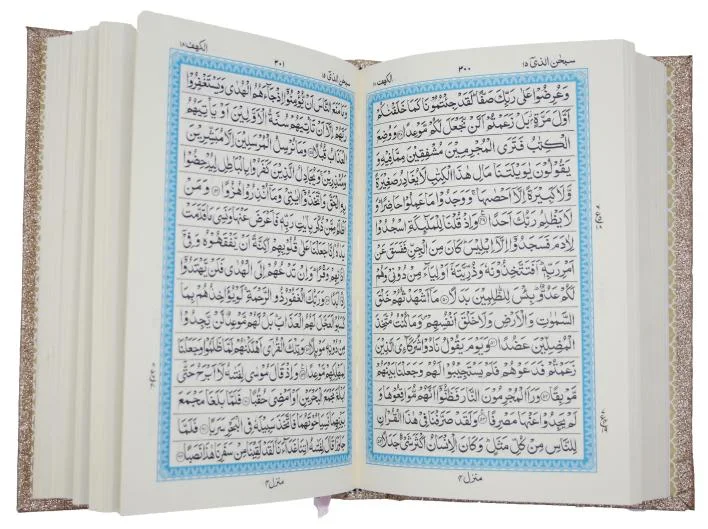 سبحٰن الذی ١٥ ٣٠٠ الكهف ١٨
وَعُرِضُوْا عَلٰى رَبِّكَ صَفًّا ؕ لَقَدْ جِئْتُمُوْنَا كَمَا خَلَقْنٰكُمْ
اَوَّلَ مَرَّةٍۭ ؗ بَلْ زَعَمْتُمْ اَلَّنْ نَّجْعَلَ لَكُمْ مَّوْعِدًا ۝ وَوُضِعَ
الْكِتٰبُ فَتَرَى الْمُجْرِمِيْنَ مُشْفِقِيْنَ مِمَّا فِيْهِ وَ
يَقُوْلُوْنَ يٰوَيْلَتَنَا مَالِ هٰذَا الْكِتٰبِ لَا يُغَادِرُ صَغِيْرَةً
وَّلَا كَبِيْرَةً اِلَّاۤ اَحْصٰىهَا ۚ وَوَجَدُوْا مَا عَمِلُوْا حَاضِرًا ؕ وَ
لَا يَظْلِمُ رَبُّكَ اَحَدًا ۝ وَاِذْ قُلْنَا لِلْمَلٰٓئِكَةِ اسْجُدُوْا
لِاٰدَمَ فَسَجَدُوْۤا اِلَّاۤ اِبْلِيْسَ ؕ كَانَ مِنَ الْجِنِّ فَفَسَقَ عَنْ
اَمْرِ رَبِّهٖ ؕ اَفَتَتَّخِذُوْنَهٗ وَذُرِّيَّتَهٗۤ اَوْلِيَآءَ مِنْ دُوْنِيْ وَهُمْ
لَكُمْ عَدُوٌّ ؕ بِئْسَ لِلظّٰلِمِيْنَ بَدَلًا ۝ مَاۤ اَشْهَدْتُّهُمْ خَلْقَ
السَّمٰوٰتِ وَالْاَرْضِ وَلَا خَلْقَ اَنْفُسِهِمْ ۪ وَمَا كُنْتُ مُتَّخِذَ
الْمُضِلِّيْنَ عَضُدًا ۝ وَيَوْمَ يَقُوْلُ نَادُوْا شُرَكَآءِيَ الَّذِيْنَ
زَعَمْتُمْ فَدَعَوْهُمْ فَلَمْ يَسْتَجِيْبُوْا لَهُمْ وَجَعَلْنَا بَيْنَهُمْ
مَّوْبِقًا ۝ وَرَاَ الْمُجْرِمُوْنَ النَّارَ فَظَنُّوْۤا اَنَّهُمْ مُّوَاقِعُوْهَا وَ
لَمْ يَجِدُوْا عَنْهَا مَصْرِفًا ۝ وَلَقَدْ صَرَّفْنَا فِيْ هٰذَا الْقُرْاٰنِ
لِلنَّاسِ مِنْ كُلِّ مَثَلٍ ؕ وَكَانَ الْاِنْسَانُ اَكْثَرَ شَيْءٍ جَدَلًا ۝
منزل ٤
سبحٰن الذی ١٥ ٣٠١ الكهف ١٨
وَمَا مَنَعَ النَّاسَ اَنْ يُّؤْمِنُوْۤا اِذْ جَآءَهُمُ الْهُدٰى وَيَسْتَغْفِرُوْا
رَبَّهُمْ اِلَّاۤ اَنْ تَاْتِيَهُمْ سُنَّةُ الْاَوَّلِيْنَ اَوْ يَاْتِيَهُمُ
الْعَذَابُ قُبُلًا ۝ وَمَا نُرْسِلُ الْمُرْسَلِيْنَ اِلَّا مُبَشِّرِيْنَ
وَمُنْذِرِيْنَ ۚ وَيُجَادِلُ الَّذِيْنَ كَفَرُوْا بِالْبَاطِلِ لِيُدْحِضُوْا
بِهِ الْحَقَّ وَاتَّخَذُوْۤا اٰيٰتِيْ وَمَاۤ اُنْذِرُوْا هُزُوًا ۝ وَمَنْ
اَظْلَمُ مِمَّنْ ذُكِّرَ بِاٰيٰتِ رَبِّهٖ فَاَعْرَضَ عَنْهَا وَنَسِيَ مَا قَدَّمَتْ
يَدٰهُ ؕ اِنَّا جَعَلْنَا عَلٰى قُلُوْبِهِمْ اَكِنَّةً اَنْ يَّفْقَهُوْهُ وَفِيْۤ
اٰذَانِهِمْ وَقْرًا ؕ وَاِنْ تَدْعُهُمْ اِلَى الْهُدٰى فَلَنْ يَّهْتَدُوْۤا
اِذًا اَبَدًا ۝ وَرَبُّكَ الْغَفُوْرُ ذُو الرَّحْمَةِ ؕ لَوْ يُؤَاخِذُهُمْ بِمَا
كَسَبُوْا لَعَجَّلَ لَهُمُ الْعَذَابَ ؕ بَلْ لَّهُمْ مَّوْعِدٌ لَّنْ يَّجِدُوْا
مِنْ دُوْنِهٖ مَوْئِلًا ۝ وَتِلْكَ الْقُرٰۤى اَهْلَكْنٰهُمْ لَمَّا ظَلَمُوْا وَجَعَلْنَا
لِمَهْلِكِهِمْ مَّوْعِدًا ۝ وَاِذْ قَالَ مُوْسٰى لِفَتٰىهُ لَاۤ اَبْرَحُ حَتّٰۤى
اَبْلُغَ مَجْمَعَ الْبَحْرَيْنِ اَوْ اَمْضِيَ حُقُبًا ۝ فَلَمَّا بَلَغَا مَجْمَعَ
بَيْنِهِمَا نَسِيَا حُوْتَهُمَا فَاتَّخَذَ سَبِيْلَهٗ فِي الْبَحْرِ سَرَبًا ۝ فَلَمَّا
جَاوَزَا قَالَ لِفَتٰىهُ اٰتِنَا غَدَآءَنَا ؗ لَقَدْ لَقِيْنَا مِنْ سَفَرِنَا هٰذَا نَصَبًا ۝
منزل ٤